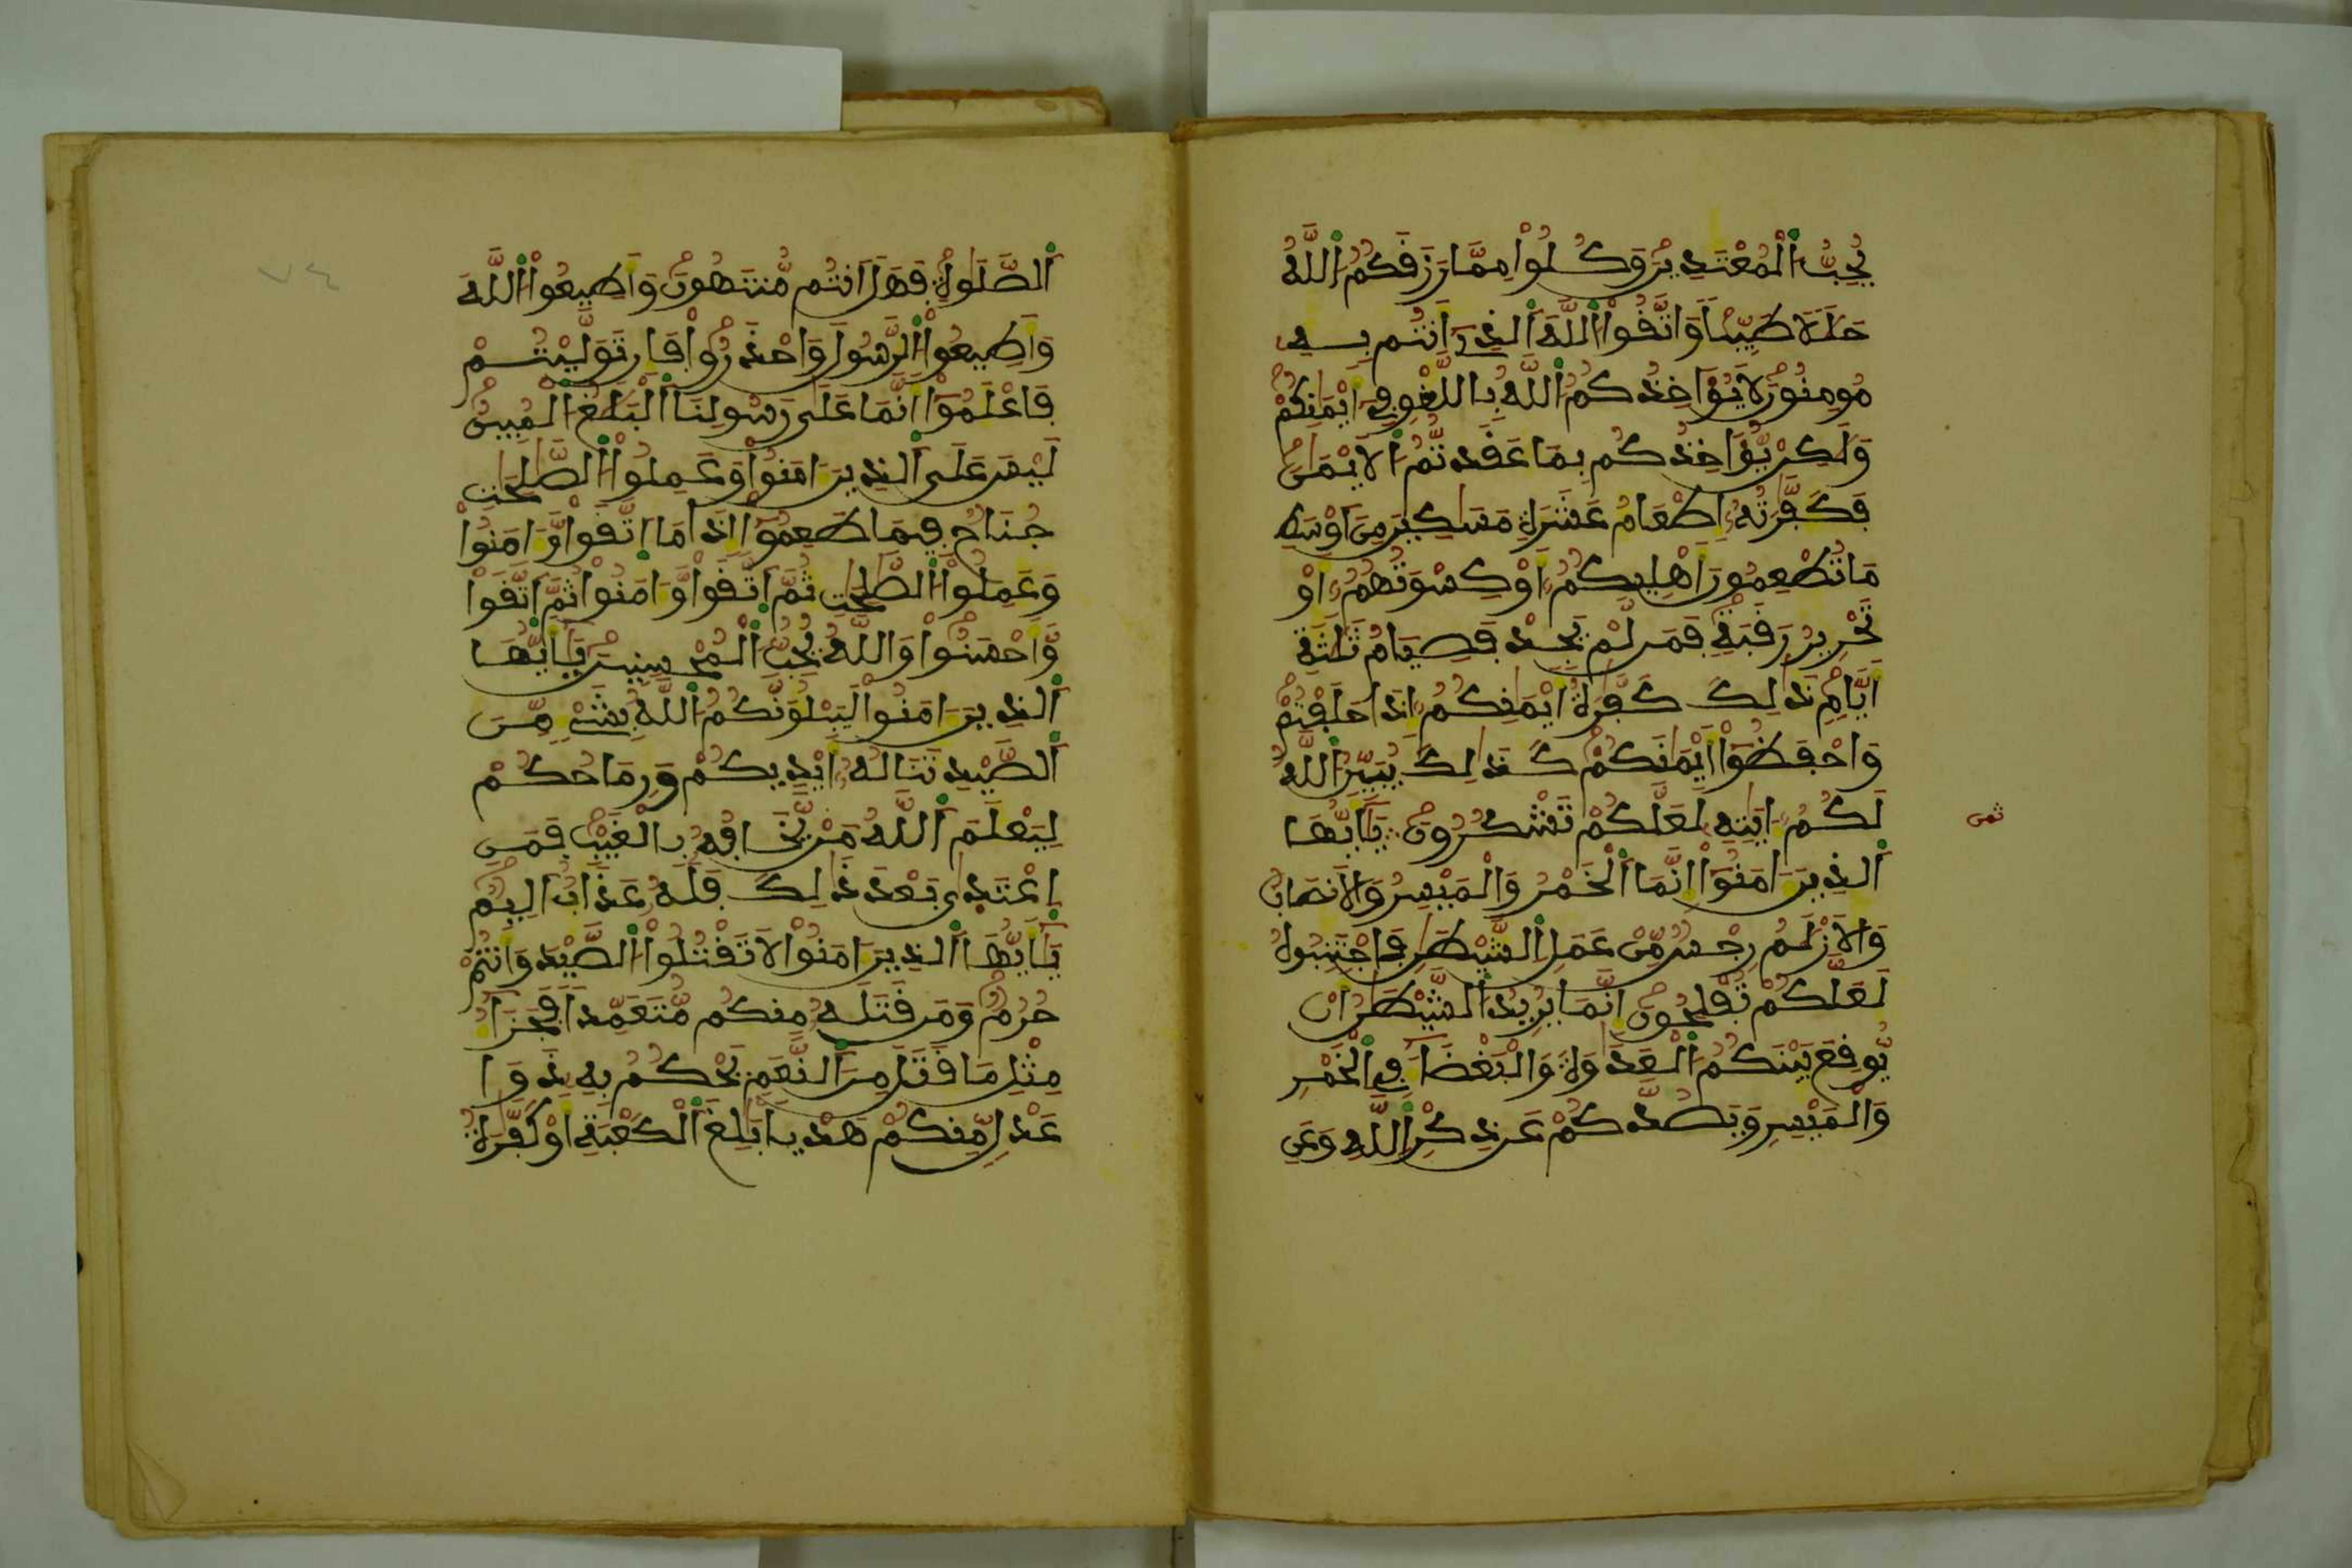 يُحِبُّ اُ۬لْمُعْتَدِينَ وَكُلُواْ مِمَّا رَزَقَكُمُ اُ۬للَّهُ
حَلَٰلاٗ طَيِّباٗ وَاتَّقُواْ اُ۬للَّهَ اَ۬لذِےٓ أَنتُم بِهِۦ
مُومِنُونَ لَا يُؤَاخِذُكُمُ اُ۬للَّهُ بِاللَّغْوِ فِےٓ أَيْمَٰنِكُمْ
وَلَٰكِنْ يُّؤَاخِذُكُم بِمَا عَقَدتُّمُ اُ۬لَايْمَٰنَ
فَكَفَّٰرَتُهُۥٓ إِطْعَامُ عَشَرَةِ مَسَٰكِينَ مِنَ اَوْسَطِ
مَا تُطْعِمُونَ أَهْلِيكُمُۥٓ أَوْ كِسْوَتُهُمُۥٓ أَوْ
تَحْرِيرُ رَقَبَةٖ فَمَن لَّمْ يَجِدْ فَصِيَامُ ثَلَٰثَةِ
أَيَّامٖ ذَٰلِكَ كَفَّٰرَةُ أَيْمَٰنِكُمُۥٓ إِذَا حَلَفْتُمْ
وَاحْفَظُوٓاْ أَيْمَٰنَكُمْ كَذَٰلِكَ يُبَيِّنُ اُ۬للَّهُ
لَكُمُۥٓ ءَايَٰتِهِۦ لَعَلَّكُمْ تَشْكُرُونَ يَٰٓأَيُّهَا
ثمن
اَ۬لذِينَ ءَامَنُوٓاْ إِنَّمَا اَ۬لْخَمْرُ وَالْمَيْسِرُ وَالَانصَابُ
وَالَازْلَٰمُ رِجْسٞ مِّنْ عَمَلِ اِ۬لشَّيْطَٰنِ فَاجْتَنِبُوهُ
لَعَلَّكُمْ تُفْلِحُونَ إِنَّمَا يُرِيدُ اُ۬لشَّيْطَٰنُ أَنْ
يُّوقِعَ بَيْنَكُمُ اُ۬لْعَدَٰوَةَ وَالْبَغْضَآءَ فِے اِ۬لْخَمْرِ
وَالْمَيْسِرِ وَيَصُدَّكُمْ عَن ذِكْرِ اِ۬للَّهِ وَعَنِ
اِ۬لصَّلَوٰةِ فَهَلَ اَنتُم مُّنتَهُونَ وَأَطِيعُواْ اُ۬للَّهَ
وَأَطِيعُواْ اُ۬لرَّسُولَ وَاحْذَرُواْ فَإِن تَوَلَّيْتُمْ
فَاعْلَمُوٓاْ أَنَّمَا عَلَىٰ رَسُولِنَا اَ۬لْبَلَٰغُ اُ۬لْمُبِينُ
لَيْسَ عَلَى اَ۬لذِينَ ءَامَنُواْ وَعَمِلُواْ اُ۬لصَّٰلِحَٰتِ
جُنَاحٞ فِيمَا طَعِمُوٓاْ إِذَا مَا اَ۪تَّقَواْ وَّءَامَنُواْ
وَعَمِلُواْ اُ۬لصَّٰلِحَٰتِ ثُمَّ اَ۪تَّقَواْ وَّءَامَنُواْ ثُمَّ اَ۪تَّقَواْ
وَّأَحْسَنُواْ وَاللَّهُ يُحِبُّ اُ۬لْمُحْسِنِينَ يَٰٓأَيُّهَا
اَ۬لذِينَ ءَامَنُواْ لَيَبْلُوَنَّكُمُ اُ۬للَّهُ بِشَےْءٖ مِّنَ
اَ۬لصَّيْدِ تَنَالُهُۥٓ أَيْدِيكُمْ وَرِمَاحُكُمْ
لِيَعْلَمَ اَ۬للَّهُ مَنْ يَّخَافُهُۥ بِالْغَيْبِ فَمَنِ
اِ۪عْتَد۪ىٰ بَعْدَ ذَٰلِكَ فَلَهُۥ عَذَابٌ اَلِيمٞ
يَٰٓأَيُّهَا اَ۬لذِينَ ءَامَنُواْ لَا تَقْتُلُواْ اُ۬لصَّيْدَ وَأَنتُمْ
حُرُمٞ وَمَن قَتَلَهُۥ مِنكُم مُّتَعَمِّداٗ فَجَزَآءُ
مِثْلِ مَا قَتَلَ مِنَ اَ۬لنَّعَمِ يَحْكُمُ بِهِۦ ذَوَا
عَدْلٖ مِّنكُمْ هَدْياَۢ بَٰلِغَ اَ۬لْكَعْبَةِ أَوْ كَفَّٰرَةُ
٧٤